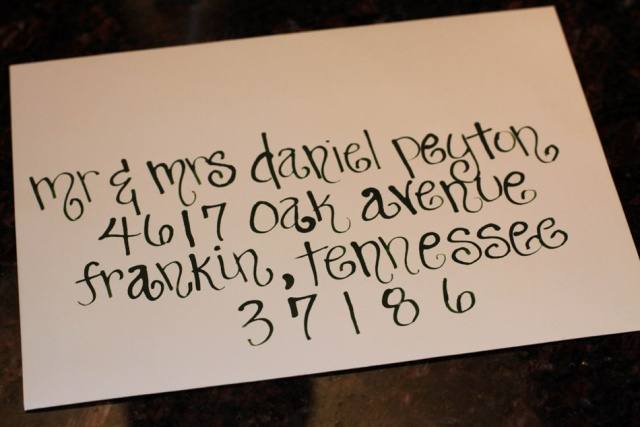 mr & mrs daniel peyton
4617 oak avenue
frankin, tennessee
37186